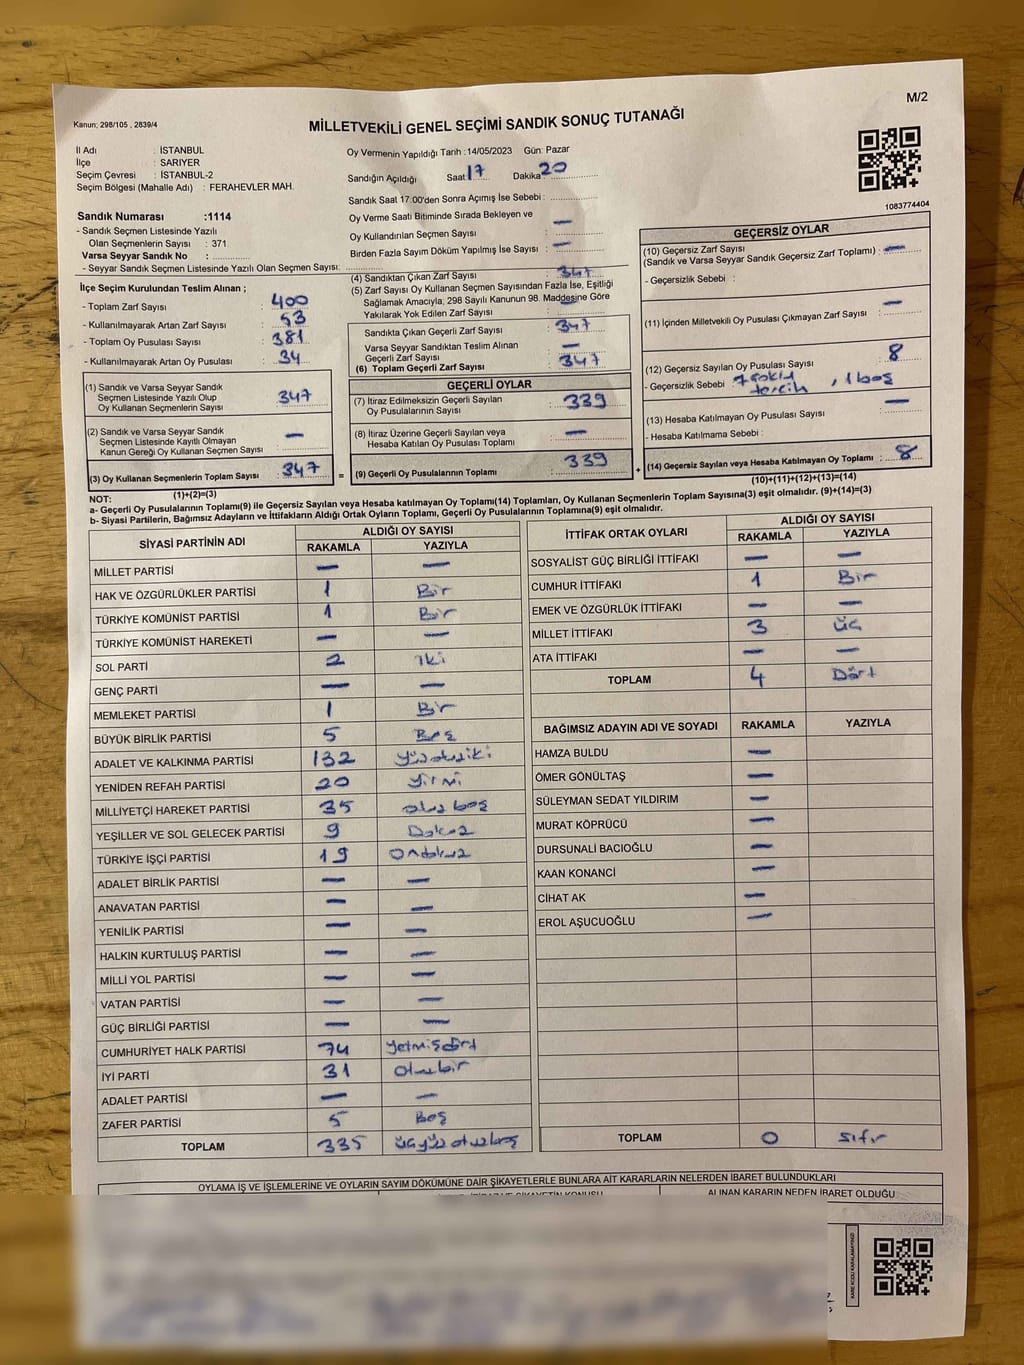 M/2
Kanun; 298/105 , 2839/4
MİLLETVEKİLİ GENEL SEÇİMİ SANDIK SONUÇ TUTANAĞI
İl Adı : İSTANBUL
İlçe : SARIYER
Seçim Çevresi : İSTANBUL-2
Seçim Bölgesi (Mahalle Adı) : FERAHEVLER MAH.
Sandık Numarası :1114
- Sandık Seçmen Listesinde Yazılı
Olan Seçmenlerin Sayısı : 371
Varsa Seyyar Sandık No :
- Seyyar Sandık Seçmen Listesinde Yazılı Olan Seçmen Sayısı:
İlçe Seçim Kurulundan Teslim Alınan ;
- Toplam Zarf Sayısı : 400
- Kullanılmayarak Artan Zarf Sayısı : 53
- Toplam Oy Pusulası Sayısı : 381
- Kullanılmayarak Artan Oy Pusulası : 34
(1) Sandık ve Varsa Seyyar Sandık
Seçmen Listesinde Yazılı Olup
Oy Kullanan Seçmenlerin Sayısı : 347
(2) Sandık ve Varsa Seyyar Sandık
Seçmen Listesinde Kayıtlı Olmayan
Kanun Gereği Oy Kullanan Seçmen Sayısı : —
(3) Oy Kullanan Seçmenlerin Toplam Sayısı : 347
(1)+(2)=(3)
Oy Vermenin Yapıldığı Tarih :14/05/2023 Gün: Pazar
Sandığın Açıldığı Saat 17 Dakika 20
Sandık Saat 17:00'den Sonra Açımış İse Sebebi :
Oy Verme Saati Bitiminde Sırada Bekleyen ve
Oy Kullandırılan Seçmen Sayısı : —
Birden Fazla Sayım Döküm Yapılmış İse Sayısı : —
(4) Sandıktan Çıkan Zarf Sayısı : 347
(5) Zarf Sayısı Oy Kullanan Seçmen Sayısından Fazla İse, Eşitliği
Sağlamak Amacıyla; 298 Sayılı Kanunun 98. Maddesine Göre
Yakılarak Yok Edilen Zarf Sayısı : —
Sandıkta Çıkan Geçerli Zarf Sayısı : 347
Varsa Seyyar Sandıktan Teslim Alınan
Geçerli Zarf Sayısı : —
(6) Toplam Geçerli Zarf Sayısı : 347
GEÇERLİ OYLAR
(7) İtiraz Edilmeksizin Geçerli Sayılan
Oy Pusulalarının Sayısı : 339
(8) İtiraz Üzerine Geçerli Sayılan veya
Hesaba Katılan Oy Pusulası Toplamı : —
= (9) Geçerli Oy Pusulalarının Toplamı : 339
1083774404
GEÇERSİZ OYLAR
(10) Geçersiz Zarf Sayısı
(Sandık ve Varsa Seyyar Sandık Geçersiz Zarf Toplamı) : —
- Geçersizlik Sebebi :
(11) İçinden Milletvekili Oy Pusulası Çıkmayan Zarf Sayısı : —
(12) Geçersiz Sayılan Oy Pusulası Sayısı : 8
- Geçersizlik Sebebi : 7 tercih , 1 boş
(13) Hesaba Katılmayan Oy Pusulası Sayısı : —
- Hesaba Katılmama Sebebi :
+ (14) Geçersiz Sayılan veya Hesaba Katılmayan Oy Toplamı : 8
(10)+(11)+(12)+(13)=(14)
NOT:
a- Geçerli Oy Pusulalarının Toplamı(9) ile Geçersiz Sayılan veya Hesaba katılmayan Oy Toplamı(14) Toplamları, Oy Kullanan Seçmenlerin Toplam Sayısına(3) eşit olmalıdır. (9)+(14)=(3)
b- Siyasi Partilerin, Bağımsız Adayların ve İttifakların Aldığı Ortak Oyların Toplamı, Geçerli Oy Pusulalarının Toplamına(9) eşit olmalıdır.
SİYASİ PARTİNİN ADI ALDIĞI OY SAYISI
RAKAMLA YAZIYLA
MİLLET PARTİSİ — —
HAK VE ÖZGÜRLÜKLER PARTİSİ 1 Bir
TÜRKİYE KOMÜNİST PARTİSİ 1 Bir
TÜRKİYE KOMÜNİST HAREKETİ — —
SOL PARTİ 2 iki
GENÇ PARTİ — —
MEMLEKET PARTİSİ 1 Bir
BÜYÜK BİRLİK PARTİSİ 5 Beş
ADALET VE KALKINMA PARTİSİ 132 yüzotuziki
YENİDEN REFAH PARTİSİ 20 yirmi
MİLLİYETÇİ HAREKET PARTİSİ 35 otuz beş
YEŞİLLER VE SOL GELECEK PARTİSİ 9 Dokuz
TÜRKİYE İŞÇİ PARTİSİ 19 Ondokuz
ADALET BİRLİK PARTİSİ — —
ANAVATAN PARTİSİ — —
YENİLİK PARTİSİ — —
HALKIN KURTULUŞ PARTİSİ — —
MİLLİ YOL PARTİSİ — —
VATAN PARTİSİ — —
GÜÇ BİRLİĞİ PARTİSİ — —
CUMHURİYET HALK PARTİSİ 74 yetmişdört
İYİ PARTİ 31 Otuzbir
ADALET PARTİSİ — —
ZAFER PARTİSİ 5 Beş
TOPLAM 335 üçyüz otuzbeş
İTTİFAK ORTAK OYLARI ALDIĞI OY SAYISI
RAKAMLA YAZIYLA
SOSYALİST GÜÇ BİRLİĞİ İTTİFAKI — —
CUMHUR İTTİFAKI 1 Bir
EMEK VE ÖZGÜRLÜK İTTİFAKI — —
MİLLET İTTİFAKI 3 üç
ATA İTTİFAKI — —
TOPLAM 4 Dört
BAĞIMSIZ ADAYIN ADI VE SOYADI RAKAMLA YAZIYLA
HAMZA BULDU —
ÖMER GÖNÜLTAŞ —
SÜLEYMAN SEDAT YILDIRIM —
MURAT KÖPRÜCÜ —
DURSUNALİ BACIOĞLU —
KAAN KONANCİ —
CİHAT AK —
EROL AŞUCUOĞLU —
TOPLAM 0 sıfır
OYLAMA İŞ VE İŞLEMLERİNE VE OYLARIN SAYIM DÖKÜMÜNE DAİR ŞİKAYETLERLE BUNLARA AİT KARARLARIN NELERDEN İBARET BULUNDUKLARI
ALINAN KARARIN NEDEN İBARET OLDUĞU
KARE KODU KARALAMAYINIZ!